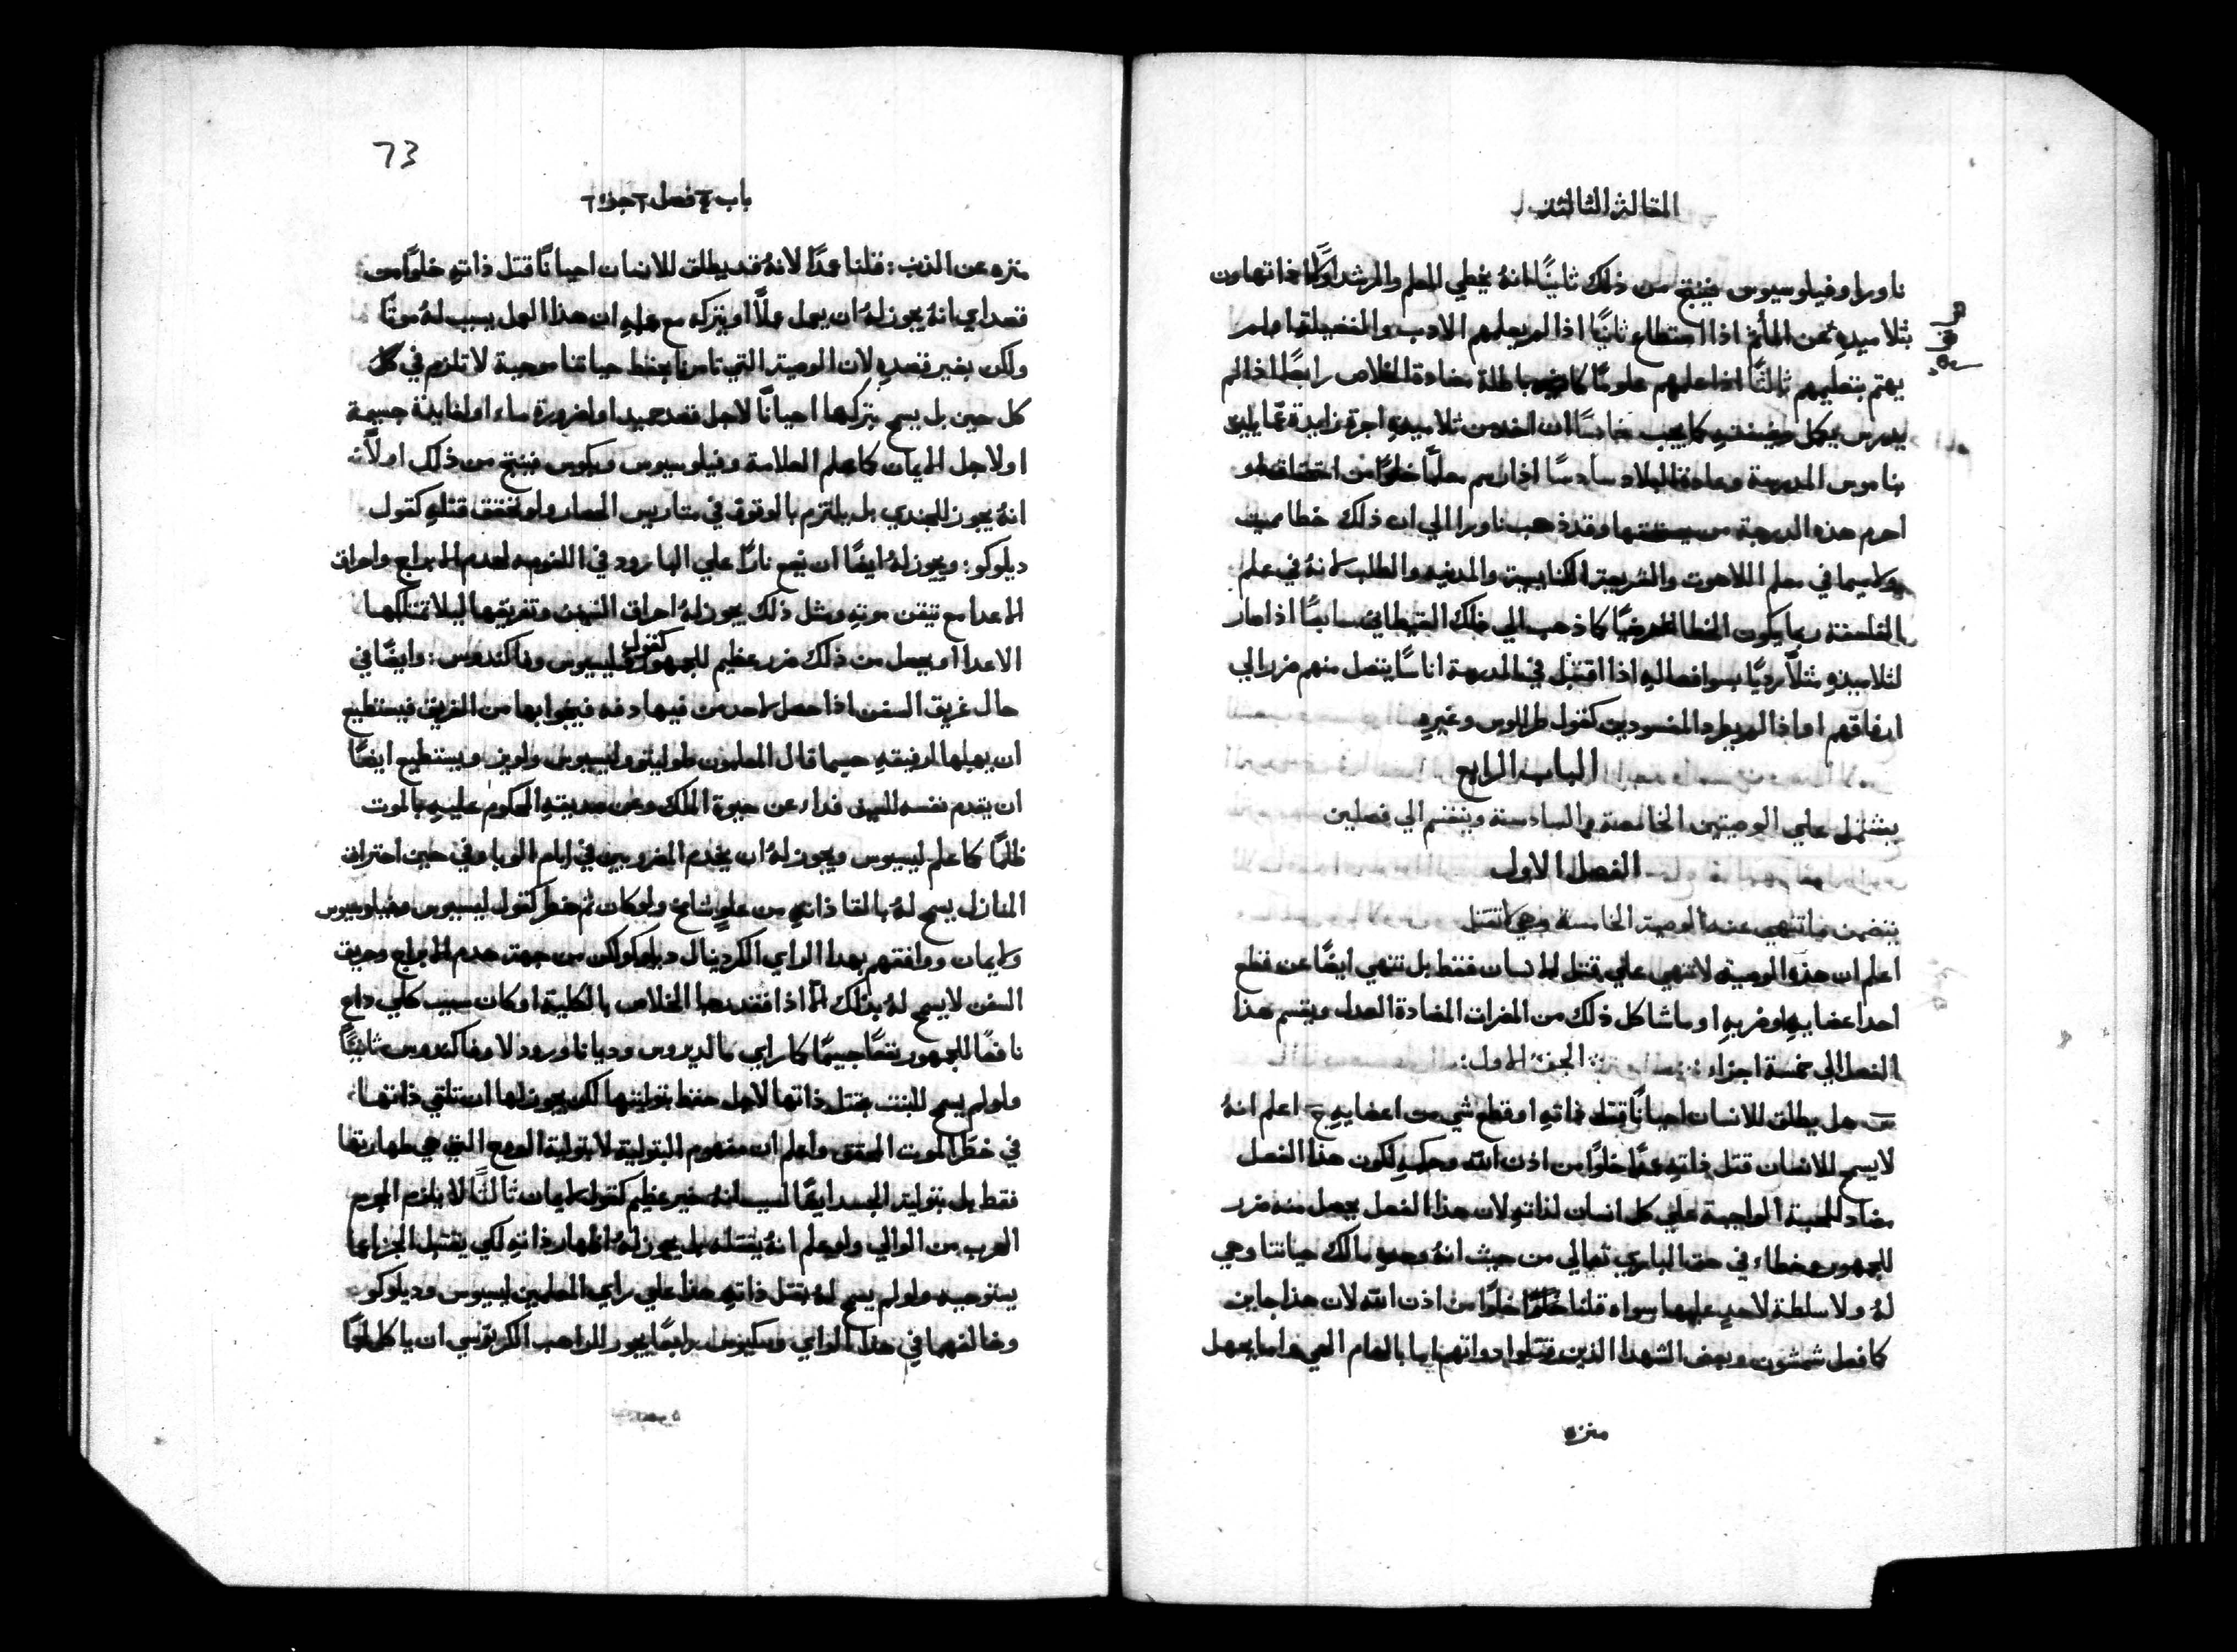 المقالة الثالثة
ناورا وفيلوسيوس فينتج من ذلك ثانيًا انهُ يخطي المعلم والمرشد اولًا اذا تهاون
بتلاميذهِ عن المأثم اذا استطاع ثانيًا اذا لم يعلمهم الادب والفضيلة ام لم
يهتم بتعليمهم ثالثًا اذا علمهم علومًا كاذبه باطلة مضادة الخلاص رابعًا اذا لم
يدرس بوكل وضيفتهِ كما يجب خامسًا ان اخذ من تلاميذهِ اجرة زايدة عمّا يليق
بناموس المدرسة وعادة البلاد سادسًا اذا رسم معلمًا خلوًا من استحقاق او
احرم هذه الدرجة من يستحقها وقد ذهب ناورا الي ان ذلك خطا مميت
ولاسيما في معلم اللاهوت والشريعة الكنايسية والمدنيه والطلب لانهُ في علم
الفلسفة ربما يكون الخطا عرضيًا كما ذهب الي ذلك القيطاني سابعًا اذا صار
لتلاميذهِ مثلًا رديًا بسوا فعاله او اذا اقتبل في المدرسة اناسًا يتصل منهم ضرر الي
ارفاقهم او اذا لم يطرد المفسودين كقول طرللوس وغيرهِ
الباب الرابع
يشتمل علي الوصيتين الخامسة والسادسة وينقسم الي فصلين
الفصل الاول
يتضمن ما تنهي عنه الوصية الخامسة وهي لا تقتل
اعلم ان هذه الوصية لا تنهي علي قتل الانسان فقط بل تنهي ايضًا عن قطع
احد اعضايهِ او ضربهِ او ما شاكل ذلك من المضرات المضادة العدل ويقسم هذا
الفصل الي خمسة اجزاء: الجزء الاول:
س هل يطلق للانسان احيانًا قتل ذاتهِ او قطع شي من اعضايهِ ج اعلم انهُ
لا يسمح للانسان قتل ذاتهِ عمدًا خلوًا من اذن الله وحكمهِ لكون هذا الفعل
مضاد المحبة الواجبة علي كل انسان لذاتهِ ولان هذا الفعل يحصل منه ضرر
للجمهور وخطاء في حق الباري تعالي من حيث انهُ وحدهِ مالك حياتنا وهي
لهُ ولا سلطة لاحدٍ عليها سواه قلنا خلوًا من اذن الله لان هذا جايز
كما فعل شمشون وبعض الشهدا الذين قتلوا ذواتهم اما بالهام الهي واما بجهل
منزه
73
باب ٤ فصل ١ جزو ١
منزه عن الذنب: قلنا عمدًا لانهُ قد يطلق للانسان احيانًا قتل ذاتهِ خلوًا من
قصد اي انهُ يجوز لهُ ان يعمل عملًا او يتركه مع علمهِ ان هذا العمل يسبب لهُ موتًا
ولكن بغير قصدهِ لان الوصية التي تامرنا بحفظ حياتنا موجبة لا تلزم في كل
كل حين بل يسمح بتركها احيانًا لاجل قصد حميد او لضرورة ماء او لفايدة جسيمة
او لاجل الايمان كما علم العلامة وفيلوسيوس وبكوس فينتج من ذلك اولًا
انهُ يجوز للجندي بل يلتزم بالوقوف في متاريس الحصار ولو تحقق قتلهِ كقول
ديلوكو: ويجوز لهُ ايضًا ان يضع نارًا علي البارود في اللغومه لهدم الابراج واحراق
الاعدا مع تيقن موتهِ ومثل ذلك يجوز لهُ احراق السفن وتغريقها ليلا تمتلكها
الاعدا او يحصل من ذلك ضرر عظيم للجمهور كقول ليسيوس وناكندوس: وايضًا في
حال غريق السفن اذا حصل لاحد من فيها دفه فينجوا بها من الغريق فيستطيع
ان يهبها لرفيقهِ حسبما قال المعلمون طوليتو وليسيوس ولوغو ويستطيع ايضًا
ان يقدم نفسه للموت فداء عن حيوة الملك وعن صديقهِ المحكوم عليهِ بالموت
ظلمًا كما علم ليسيوس ويجوز لهُ ان يخدم المضروبين في ايام الوبا وفي حين احتراق
المنازل يسمح لهُ بالقا ذاتهِ من علوٍ شامخ ولو كان ثم خطر كقول ليسيوس وفيلوسيوس
ولايمان ووافقهم بهذا الراي الكردينال ديلوكو لكن من جهة هدم الابراج وحريق
السفن لا يسمح لهُ بذلك الّا اذا فقد رجا الخلاص بالكلية او كان سبب كلي داعٍ
نافعًا للجمهور نفعًا جسيمًا كما راي مالديروس وديانا ورودلا وناكندوس ثانيًا
ولو لم يسمح للبنت بقتل ذاتها لاجل حفظ بتوليتها لكن يجوز لها ان تلقي ذاتها
في خطر الموت المحقق واعلم ان مفهوم البتولية لا بتولية الروح التي هي طهارتها
فقط بل بتولية الجسد ايضًا لسبب انهُ خير عظيم كقول لايمان ثالثًا لا يلزم المجرم
الهرب من الوالي ولو علم انهُ يقتله بل يجوز لهُ اظهار ذاتهِ لكي يقتبل الجزا عما
يستوجبه ولو لم يسمح لهُ بقتل ذاتهِ هذا علي راي المعلمين ليسيوس وديلوكو
وخالفهما في هذا الراي وسكيوس رابعًا يجوز للراهب الكرتوسي ان ياكل لحمًا